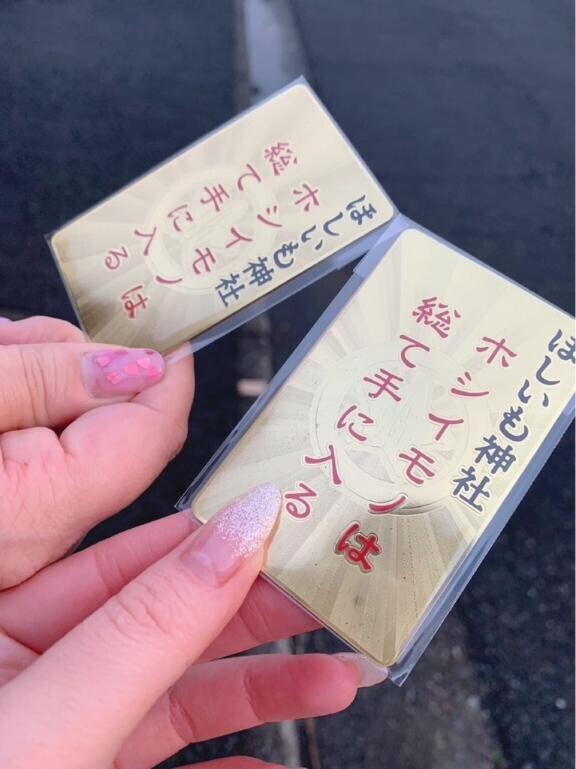 ほしいも神社
ホシイモノは
総て手に入る
ほしいも神社
ホシイモノは
総て手に入る